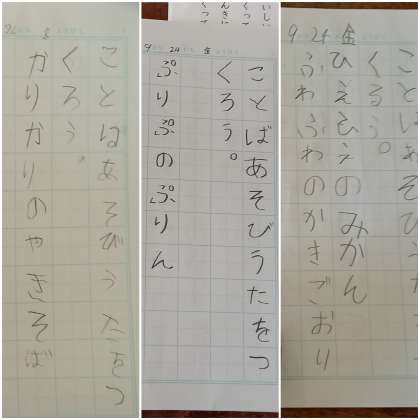 ことばあそびうたをつ
くろう。
かりかりのやきそば
9 24 金
ことばあそびうたをつ
くろう。
ぷりぷのぷりん
9 24 金
ことばあそびうた
くろう。
ひえひえのみかん
ふわふわのかきごおり